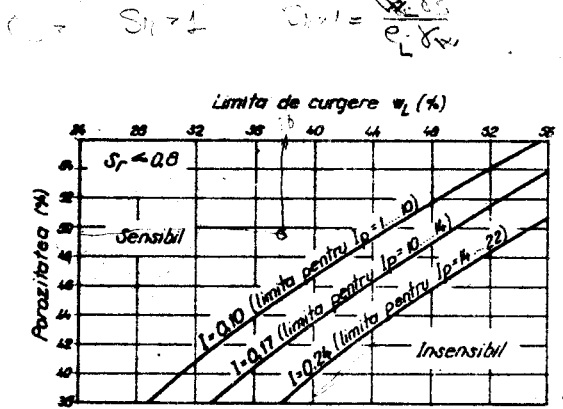 Sr > 1
Limita de curgere wL (%)
24 28 32 36 40 44 48 52 56
Sr < 0,8
Porozitatea (%)
54
52
50
48
46
44
42
40
38
Sensibil
I=0,10 (limita pentru Ip=1...10)
I=0,17 (limita pentru Ip=10...14)
I=0,24 (limita pentru Ip=14...22)
Insensibil